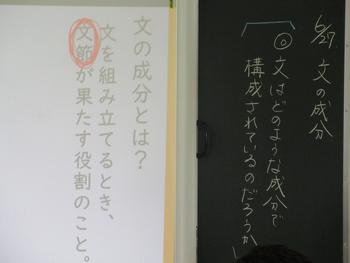 5/27 文の成分
◎文はどのような成分で
構成されているのだろうか
文の成分とは?
文を組み立てるとき、
文節が果たす役割のこと。